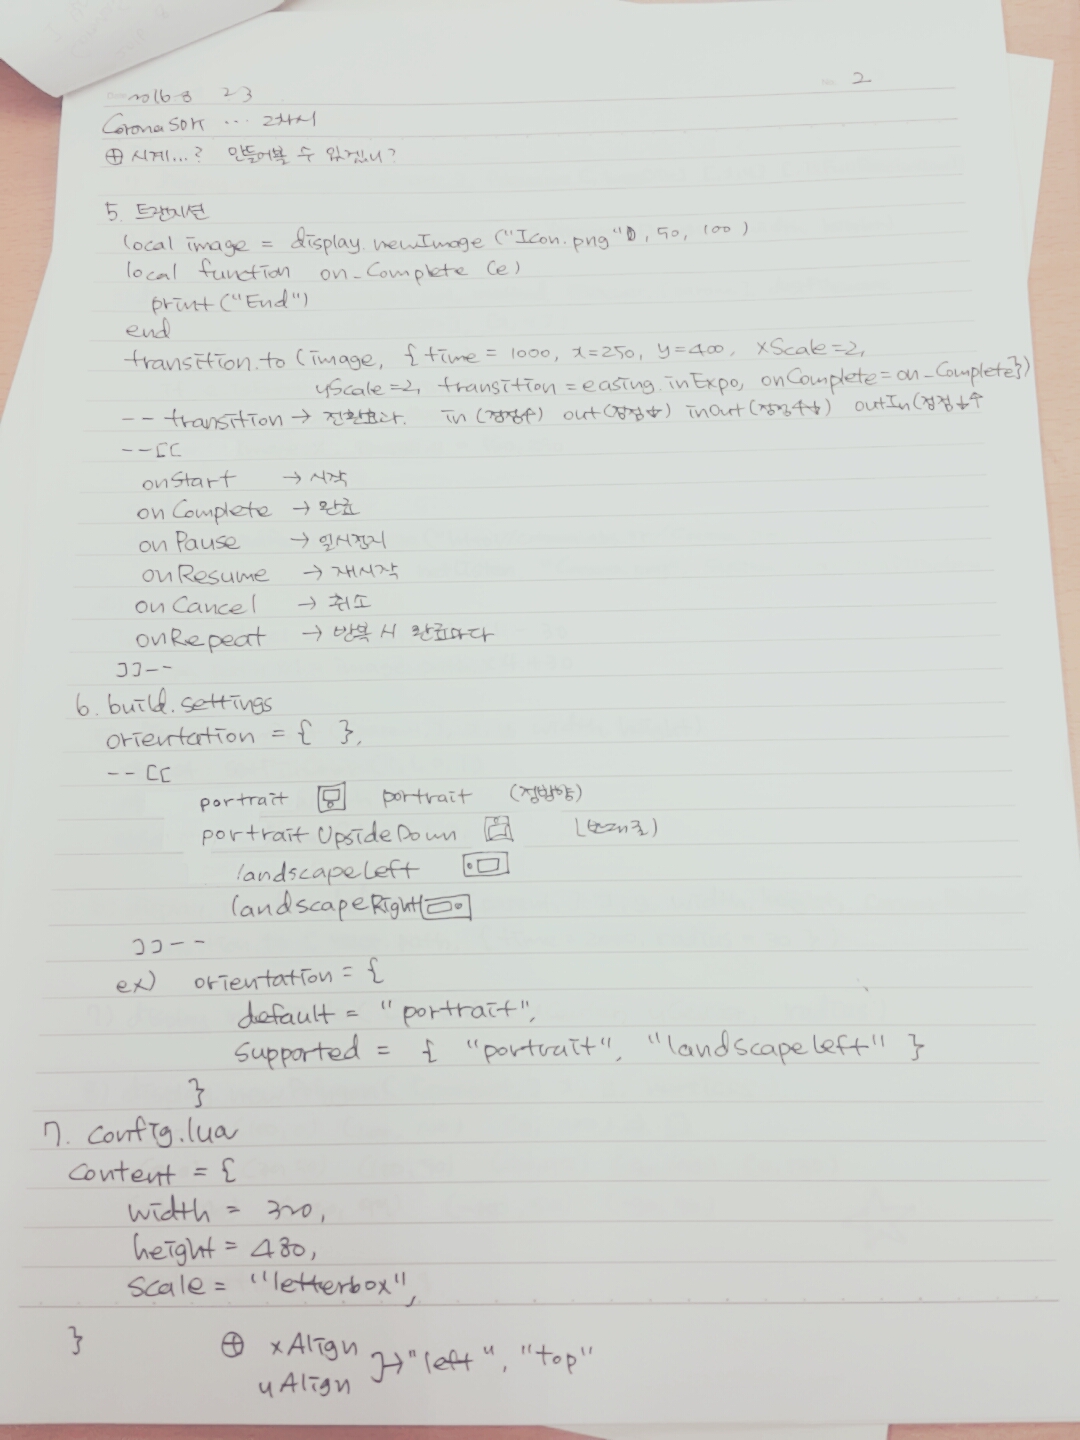 Date 2016 8 23
No. 2
Corona SDK ... 2차시
⊕ 시계...? 만들어볼 수 있겠니?
5. 트랜지션
local image = display.newImage ("Icon.png", 50, 100)
local function on_Complete (e)
print("End")
end
transition.to (image, { time = 1000, x=250, y=400, xScale=2,
yScale=2, transition = easing.inExpo, onComplete = on_Complete})
-- transition → 전환효과. in (점점↑) out (점점↓) inOut (점점↑↓) outIn (점점↓↑
--[[
onStart → 시작
onComplete → 완료
onPause → 일시정지
onResume → 재시작
onCancel → 취소
onRepeat → 반복 시 완료마다
]]--
6. build.settings
orientation = { },
--[[
portrait portrait (정방향)
portraitUpsideDown (반대로)
landscapeLeft
landscapeRight
]]--
ex) orientation = {
default = "portrait",
supported = { "portrait", "landscapeLeft" }
}
7. config.lua
content = {
width = 320,
height = 480,
scale = "letterbox",
}
⊕ xAlign
yAlign }→ "left", "top"